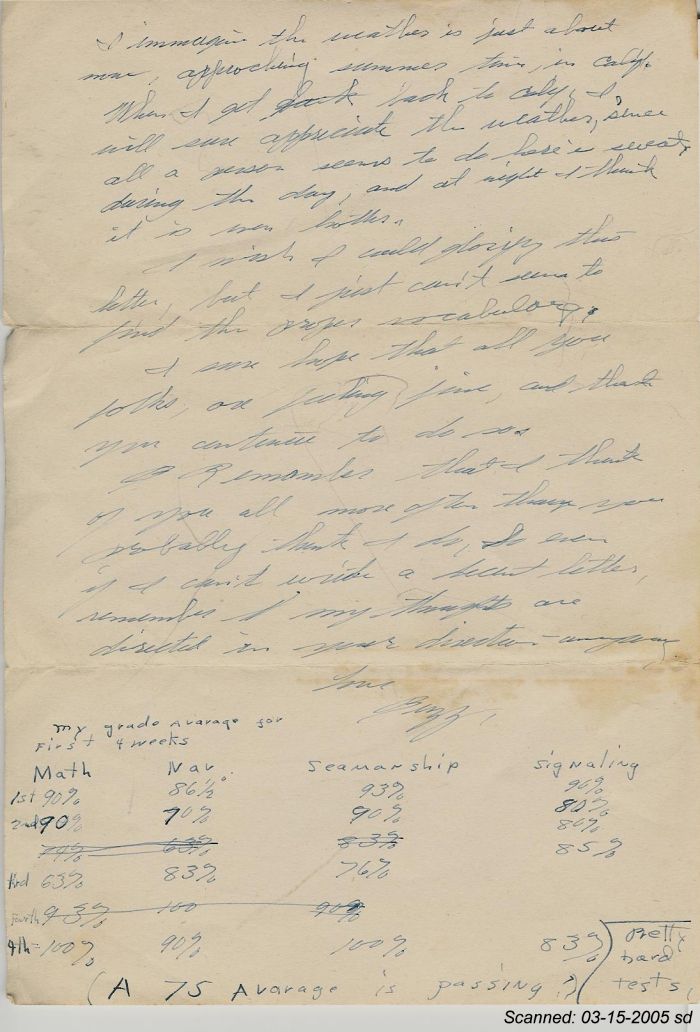 I immagine the weather is just about
now, approching summer time, in calif.
When I get back back to caly, I
will sure appriciate the weather, since
all a person seems to do here is sweat,
during the day, and at night I think
it is even hotter.
I wish I could glorify this
letter, but I just can't seem to
find the proper vocabulary.
I sure hope that all you
folks, are feeling fine, and that
you continue to do so.
Remember that I think
of you all more often than you
probably think I do, So even
if I can't write a decent letter,
remember my thoughts are
directed in your direction anyway.
Love
Buzz,
my grade Avarage for
First 4 weeks
Math Nav. Seamarship signaling
1st 90% 86½% 93% 90%
2nd 90% 90% 90% 80%
80%
63% 83% 85%
3rd 63% 83% 76%
Fourth 93% 100 90%
4th = 100% 90% 100% 83%
Pretty
hard
tests,
(A 75 Avarage is passing.)
Scanned: 03-15-2005 sd